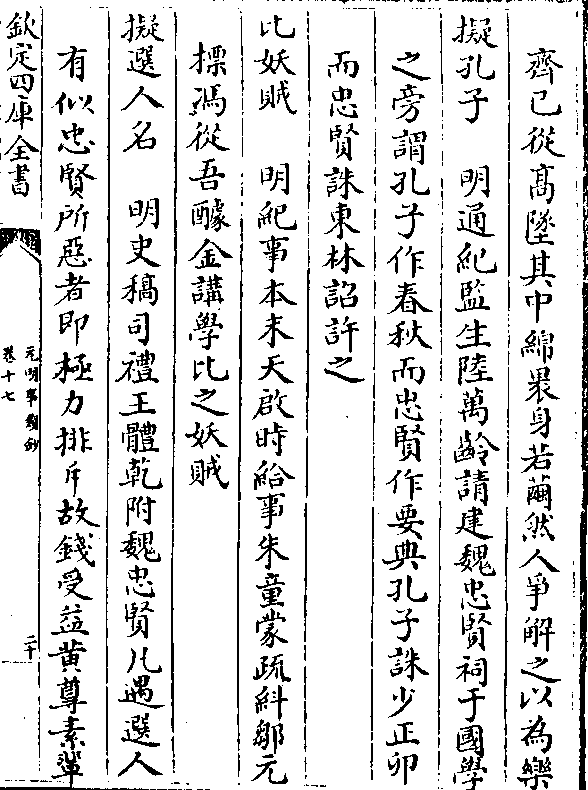 齊已從髙墜其中綿褁身若繭然人爭解之以為樂
擬孔子　明通紀監生陸萬齡請建魏忠賢祠于國學
之旁謂孔子作春秋而忠賢作要典孔子誅少正卯
而忠賢誅東林詔許之
比妖賊　明紀事本末天啟時給事朱童蒙疏糾鄒元
摽馮從吾醵金講學比之妖賊
擬選人名　明史稿司禮王體乾附魏忠賢凡遇選人
有似忠賢所惡者即極力排斥故錢受益黄尊素輩
欽定四庫全書
元明事類鈔
卷十七
二十